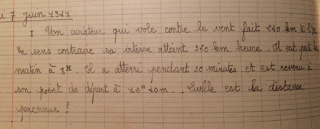 7 juin 1927
I Un aviateur qui vole contre le vent fait 240 km à l'h
En sens contraire sa vitesse atteint 340 km heure. Il est parti le
matin à 7H. Il a atterri pendant 20 minutes et est revenu à
son point de départ à 10H 20m. Quelle est la distance
parcourue ?